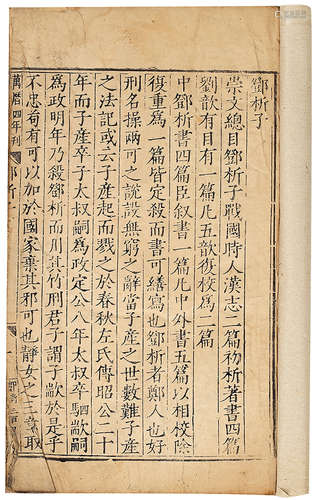 鄧析子
崇文總目鄧析子戰國時人漢志二篇初析著書四篇
劉歆有目有一篇凡五歆復校為二篇
中鄧析書四篇臣叙書一篇凡中外書五篇以相校除
復重為一篇皆定殺而書可繕寫也鄧析者鄭人也好
刑名操兩可之說設無窮之辭當子產之世數難子產
之法記或云子產起而戮之於春秋左氏傳昭公二十
年而子產卒子太叔嗣為政定公八年太叔卒駟歂嗣
為政明年乃殺鄧析而用其竹刑君子謂子歂於是乎
不忠苟有可以加於國家棄其邪可也靜女之三章取
萬曆四年刊